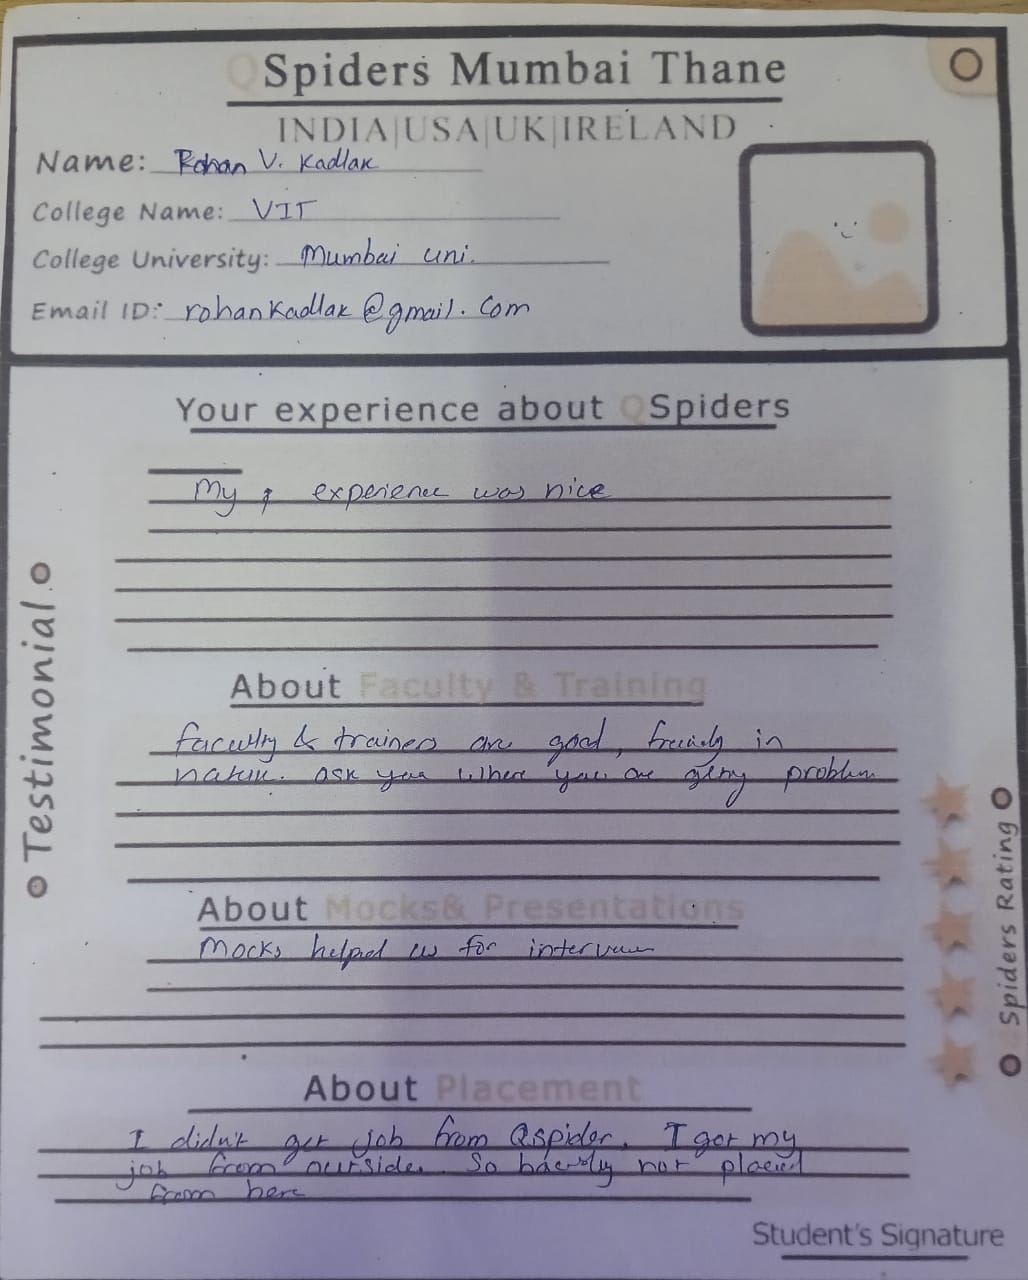 QSpiders Mumbai Thane
INDIA|USA|UK|IRELAND
Name: Rohan V. Kadlak
College Name: VIT
College University: Mumbai uni.
Email ID: rohankadlak@gmail.com
Your experience about QSpiders
My experience was nice
About Faculty & Training
faculty & trainers are good, friendly in
nature. ask you where you are problem
About Mocks& Presentations
Mocks helped us for interview
About Placement
I didn't get job from Qspider. I got my
job from outside. So not placed
from here
Student's Signature
Testimonial
QSpiders Rating